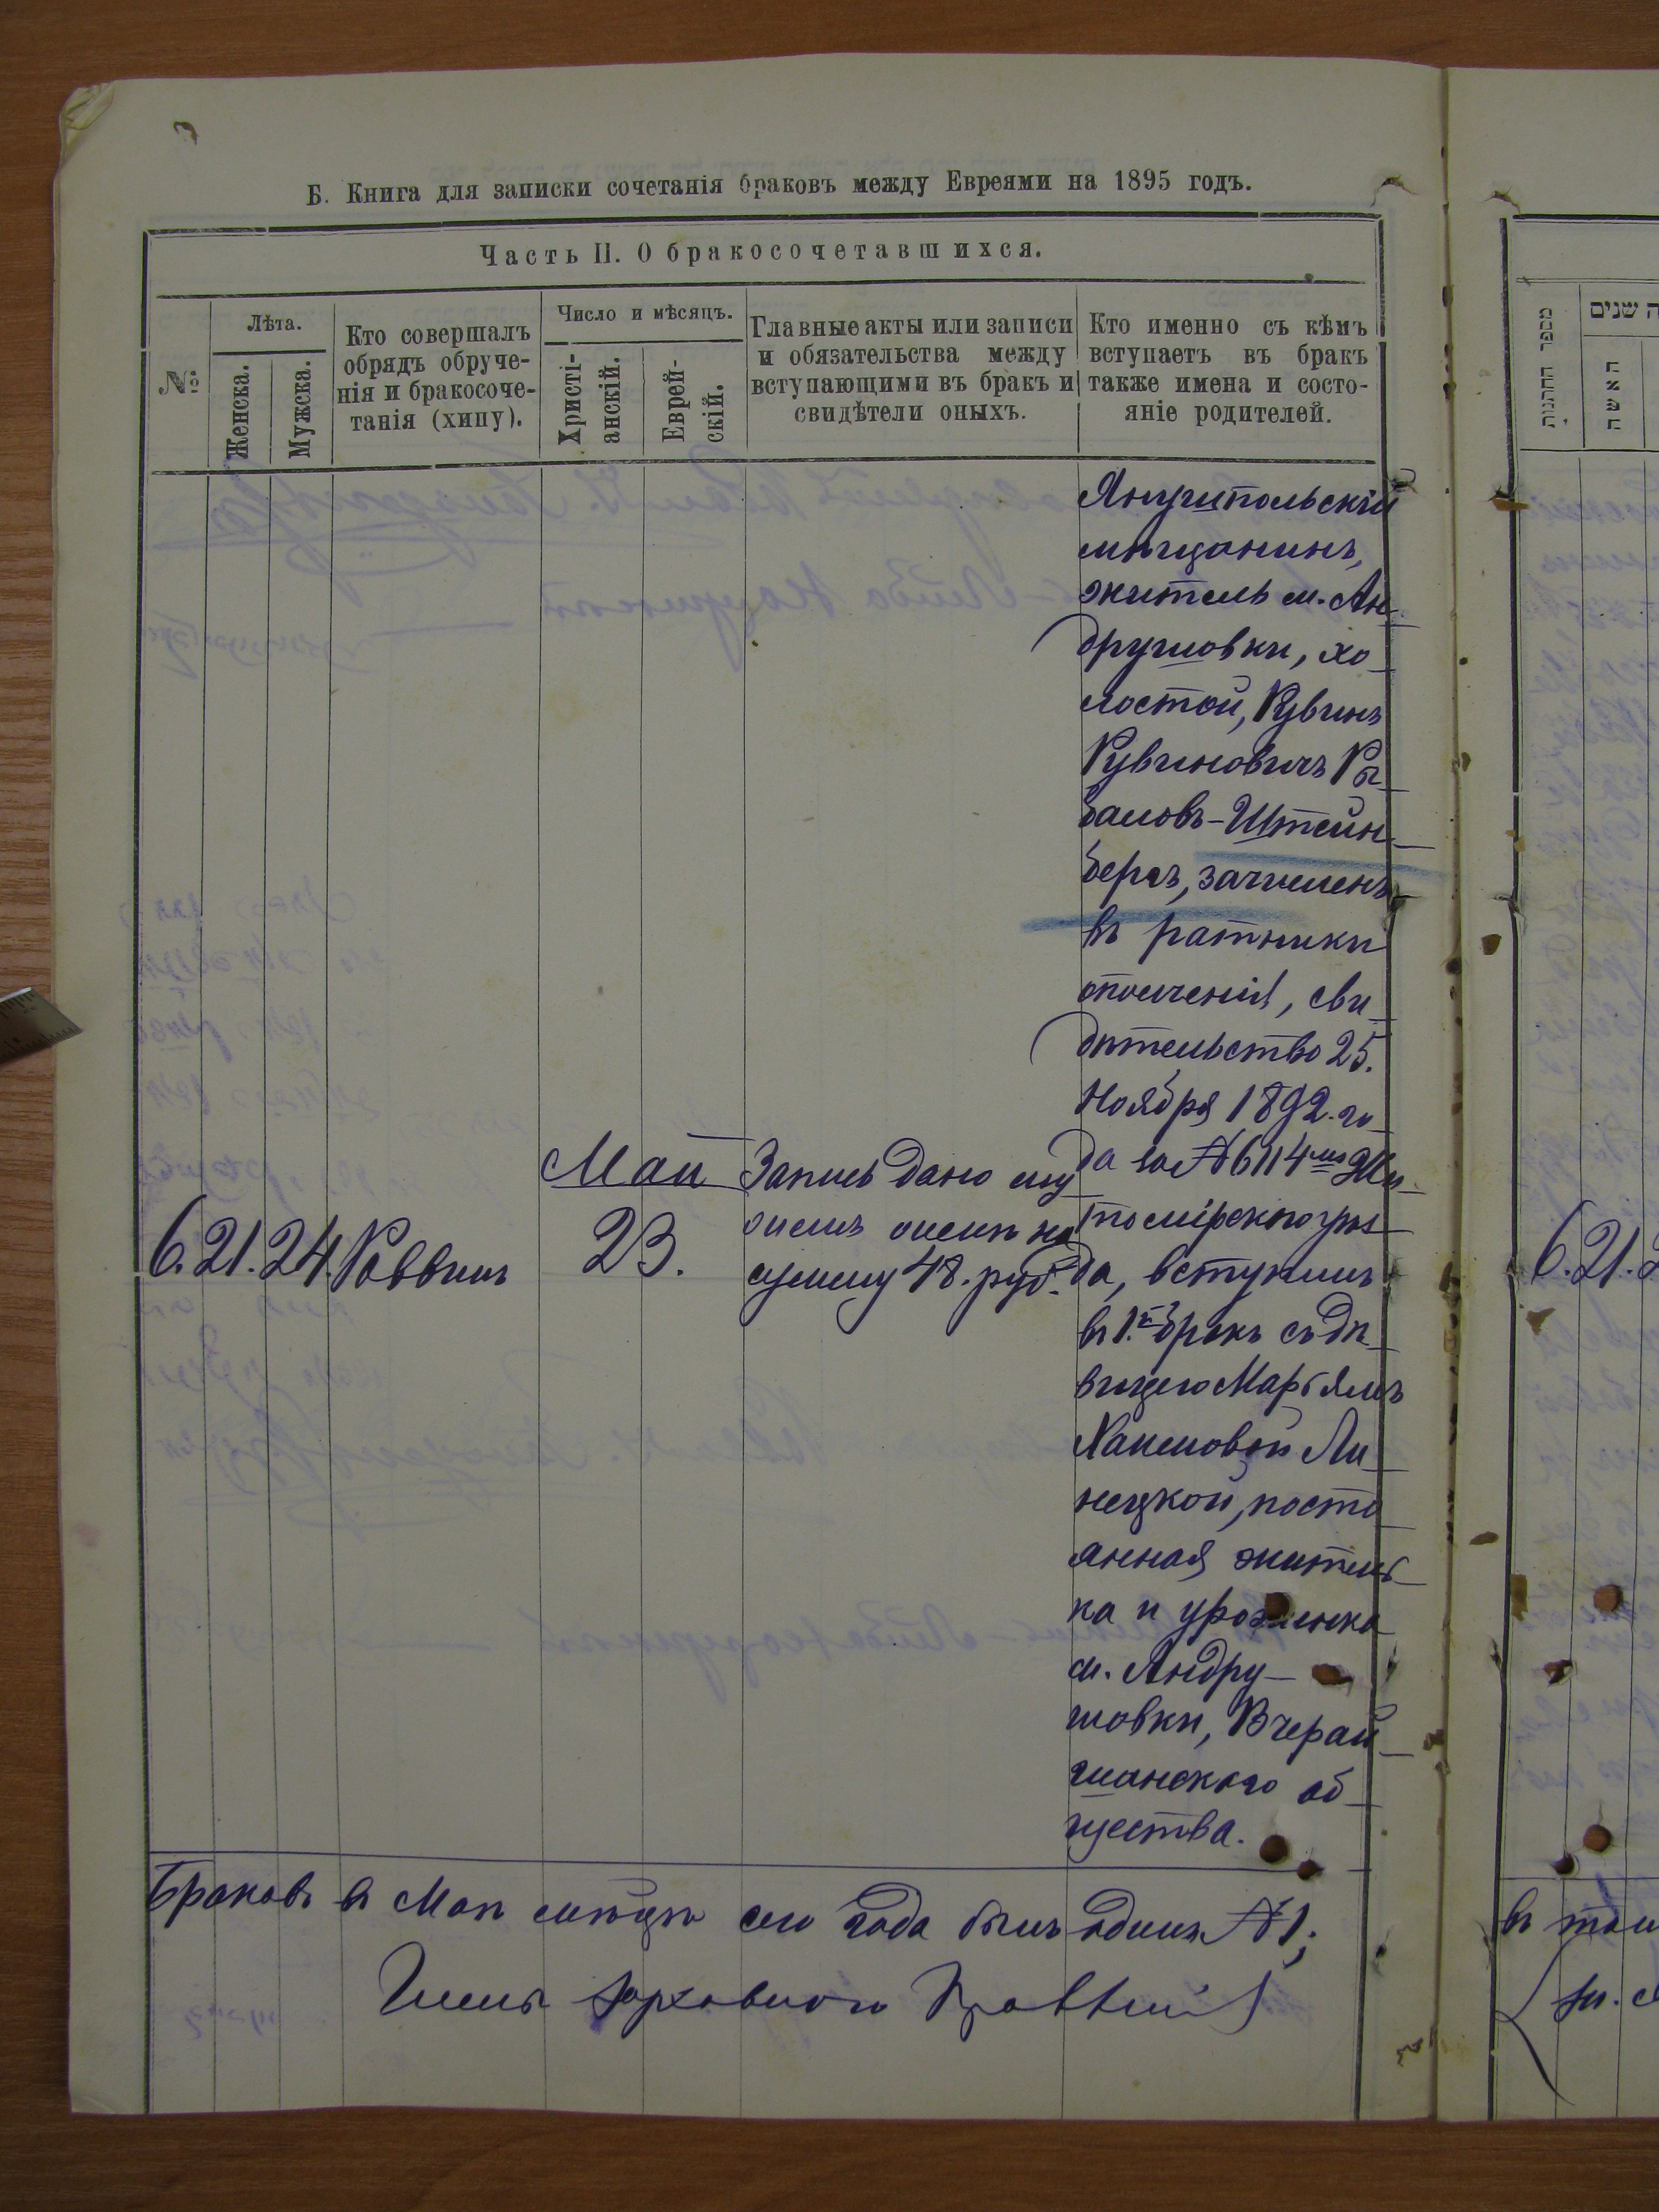 Б. Книга для записки сочетанія браковъ между Евреями на 1895 годъ.
Часть II. О бракосочетавшихся.
№
Лѣта.
Женска.
Мужска.
Кто совершалъ
обрядъ обруче-
нія и бракосоче-
танія (хипу).
Число и мѣсяцъ.
Христі-
анскій.
Еврей-
скій.
Главные акты или записи
и обязательства между
вступающими въ бракъ и
свидѣтели оныхъ.
Кто именно съ кѣмъ
вступаетъ въ бракъ
также имена и состо-
яніе родителей.
6. 21. 24. Раввинъ
Май
23.
Запись дано
на
сумму 48. руб.
Янушпольскій
мѣщанинъ,
житель м. Ан-
друшовки, хо-
лостой, Рувинъ
Рувиновичъ Ры-
баловъ-Штейн-
бергъ, зачисленъ
въ ратники
ополченія, сви-
дѣтельство 25.
Ноября 1892. го-
да за № 6114 Жи-
томірского уѣз-
да, вступилъ
въ 1.й бракъ съ дѣ-
вицею Марьямъ
Хаимовой Ли-
нецкой, посто-
янная житель-
ка и уроженка
м. Андру-
шовки, Вчерай-
шанского об-
щества.
Браковъ въ Маѣ мѣсяцѣ сего года былъ одинъ № 1;
מספר החתונות
ה שנים
האשה
6. 21.
въ